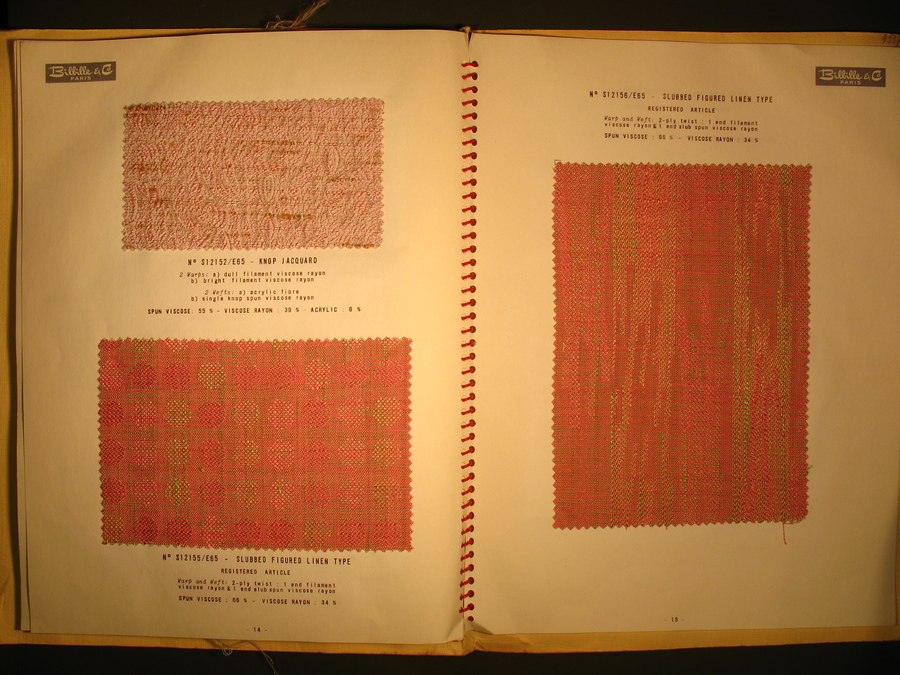 Billille & C
PARIS
Nº S12152/E65 - KNOP JACQUARD
2 Warps: a) dull filament viscose rayon
b) bright filament viscose rayon
2 Wefts: a) acrylic fibre
b) single knop spun viscose rayon
SPUN VISCOSE: 55 % - VISCOSE RAYON : 39 % - ACRYLIC : 6 %
Nº S12155/E65 - SLUBBED FIGURED LINEN TYPE
REGISTERED ARTICLE
Warp and Weft: 2-ply twist : 1 end filament
viscose rayon & 1 end slub spun viscose rayon
SPUN VISCOSE : 66 % - VISCOSE RAYON : 34 %
- 14 -
Billille & C
PARIS
Nº S12156/E65 - SLUBBED FIGURED LINEN TYPE
REGISTERED ARTICLE
Warp and Weft: 2-ply twist : 1 end filament
viscose rayon & 1 end slub spun viscose rayon
SPUN VISCOSE : 66 % - VISCOSE RAYON : 34 %
- 15 -